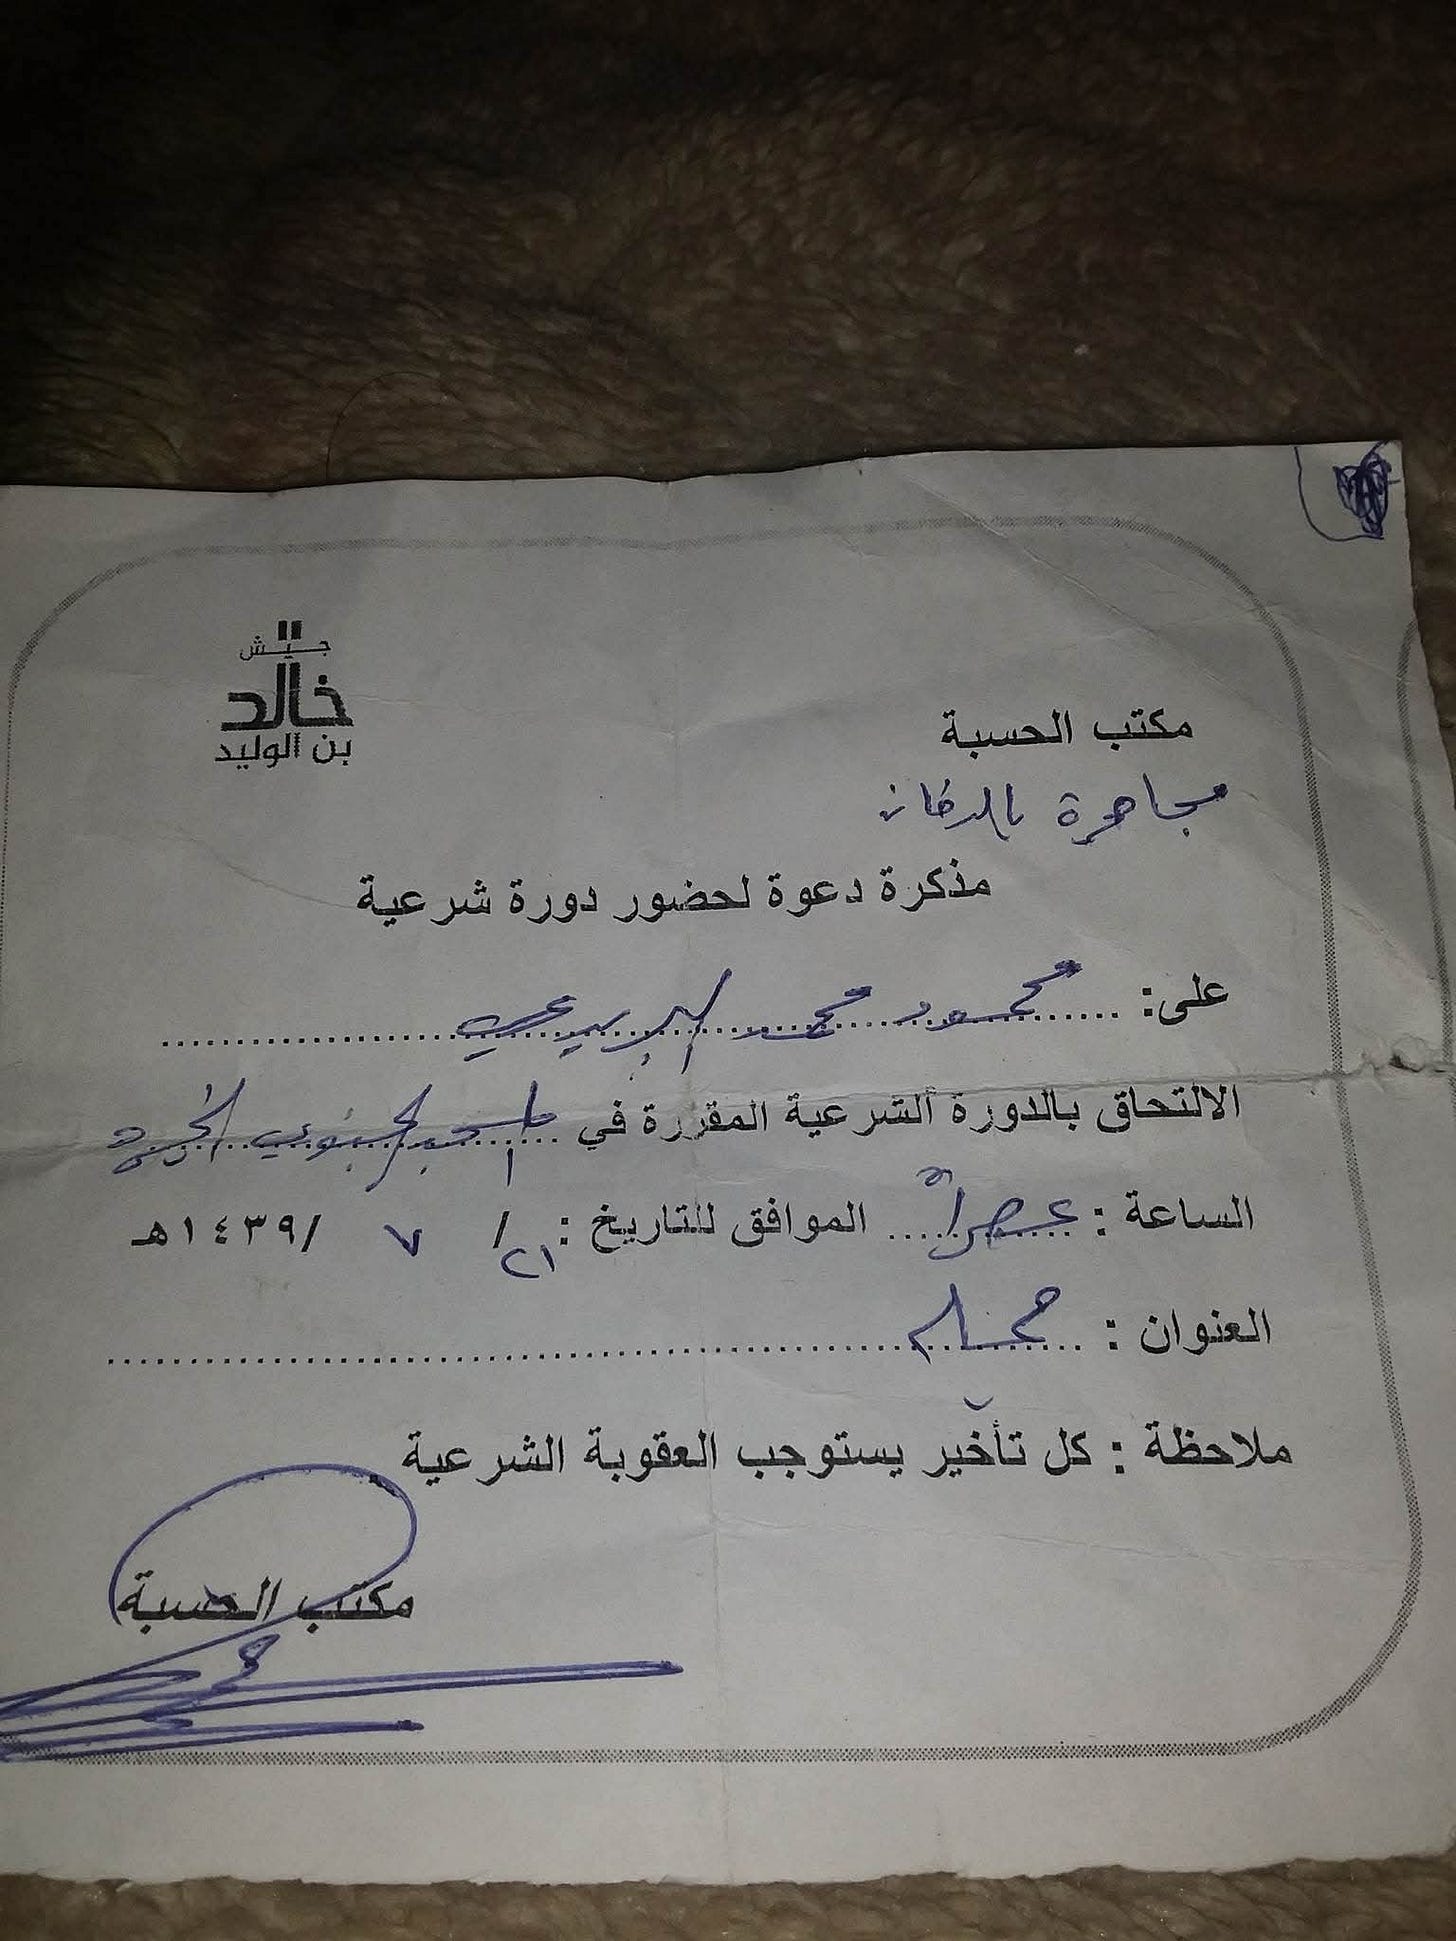 جيش
خالد
بن الوليد
مكتب الحسبة
مجاهرة بالدخان
مذكرة دعوة لحضور دورة شرعية
على: محمود محمد البريدي
الالتحاق بالدورة الشرعية المقررة في الجنوبي
الساعة : عصراً الموافق للتاريخ : ٢١ / ٧ / ١٤٣٩هـ
العنوان :
ملاحظة : كل تأخير يستوجب العقوبة الشرعية
مكتب الحسبة